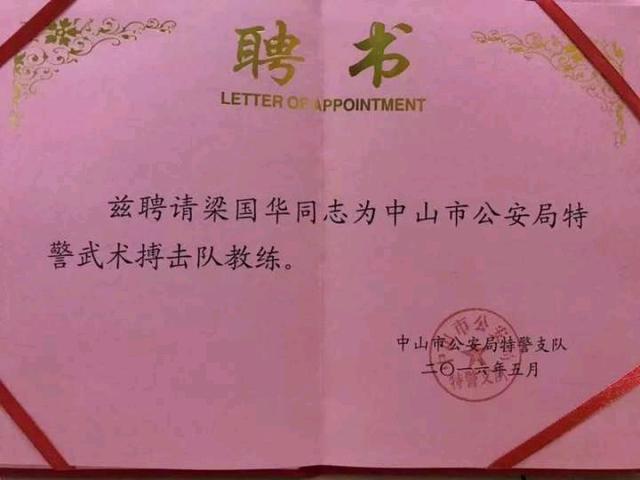 聘书
LETTER OF APPOINTMENT
兹聘请梁国华同志为中山市公安局特
警武术搏击队教练。
中山市公安局特警支队
二〇一六年五月
中山市公安局
特警支队